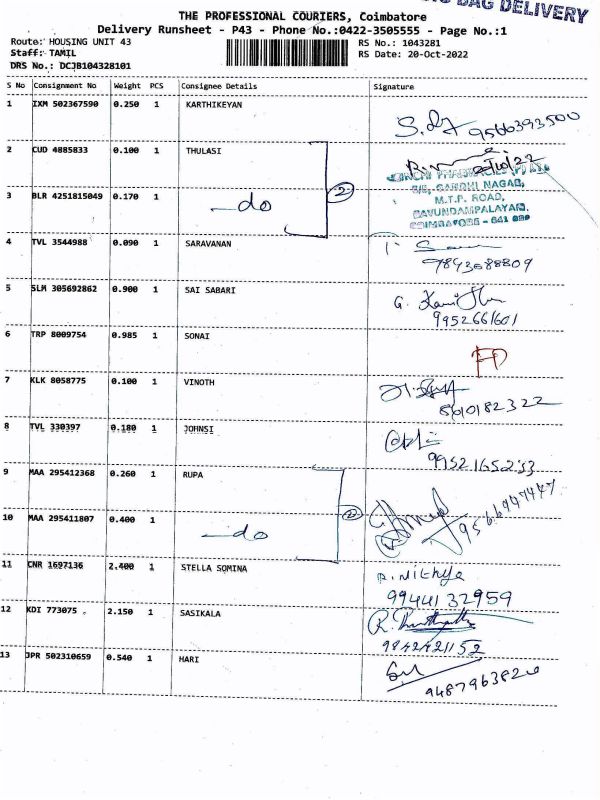 BAG DELIVERY
THE PROFESSIONAL COURIERS, Coimbatore
Delivery Runsheet - P43 - Phone No.:0422-3505555 - Page No.:1
Route: HOUSING UNIT 43
Staff: TAMIL
DRS No.: DCJB104328101
RS No.: 1043281
RS Date: 20-Oct-2022
S No Consignment No Weight PCS Consignee Details Signature
1 IXM 502367590 0.250 1 KARTHIKEYAN
9566393500
2 CUD 4885833 0.100 1 THULASI
20/10/22
GANDHI NAGAR,
M.T.P. ROAD,
GAVUNDAMPALAYAM,
COIMBATORE - 641 030
3 BLR 4251815049 0.170 1 -do 2
4 TVL 3544988 0.090 1 SARAVANAN
9843688809
5 SLM 305692862 0.900 1 SAI SABARI
9952661601
6 TRP 8009754 0.985 1 SONAI
7 KLK 8058775 0.100 1 VINOTH
8610182322
8 TVL 330397 0.180 1 JOHNSI
9952165233
9 MAA 295412368 0.260 1 RUPA
9566947447
10 MAA 295411807 0.400 1 -do 2
11 CNR 1697136 2.400 1 STELLA SOMINA
R. Nithya
9944132959
12 KDI 773075 2.150 1 SASIKALA
9842421152
13 JPR 502310659 0.540 1 HARI
9487963820